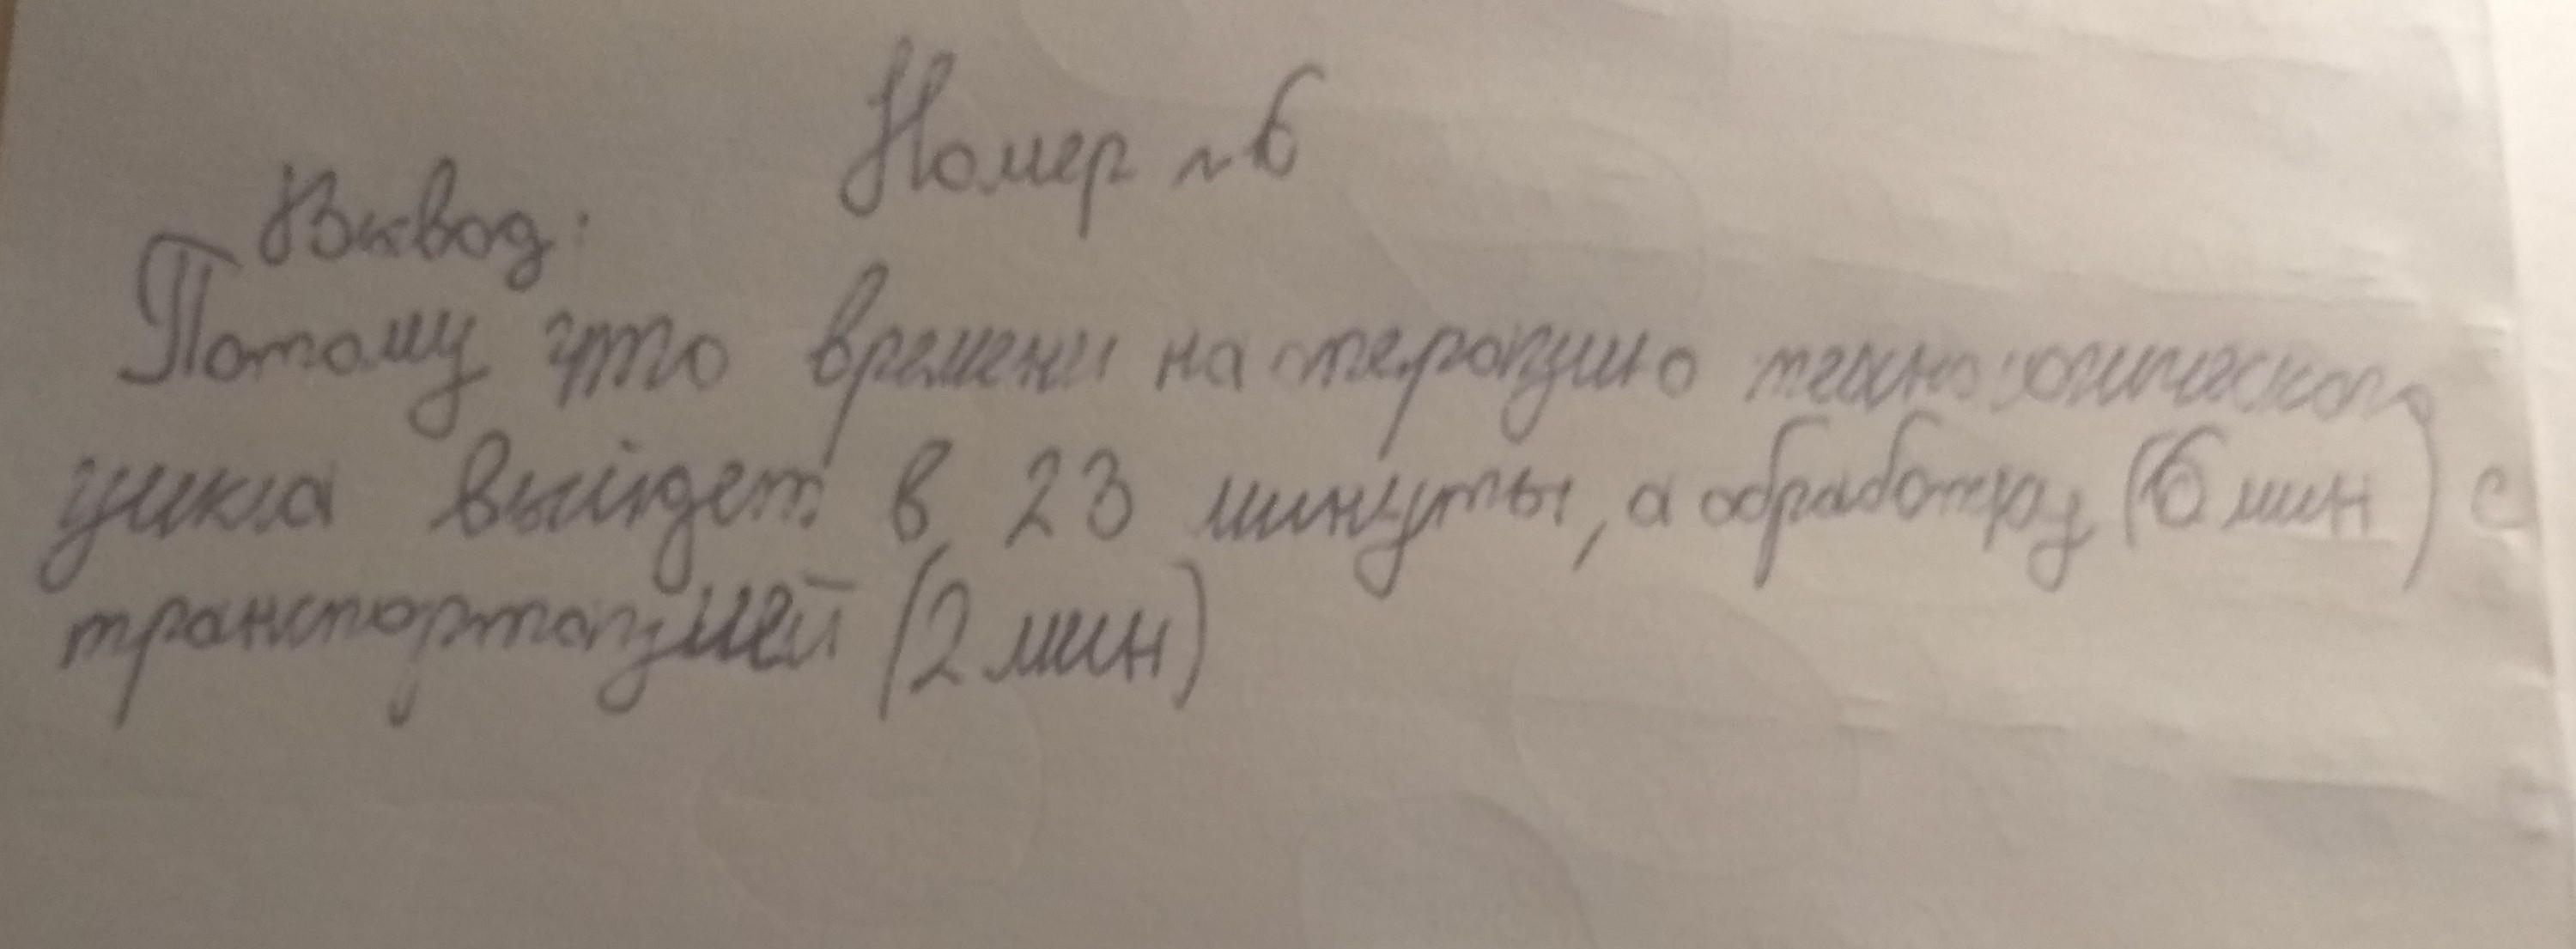 Номер №6
Вывод:
Потому что времени на терапию технологического
цикла выйдет в 23 минуты, а обработку (6 мин) с
транспортацией (2 мин)